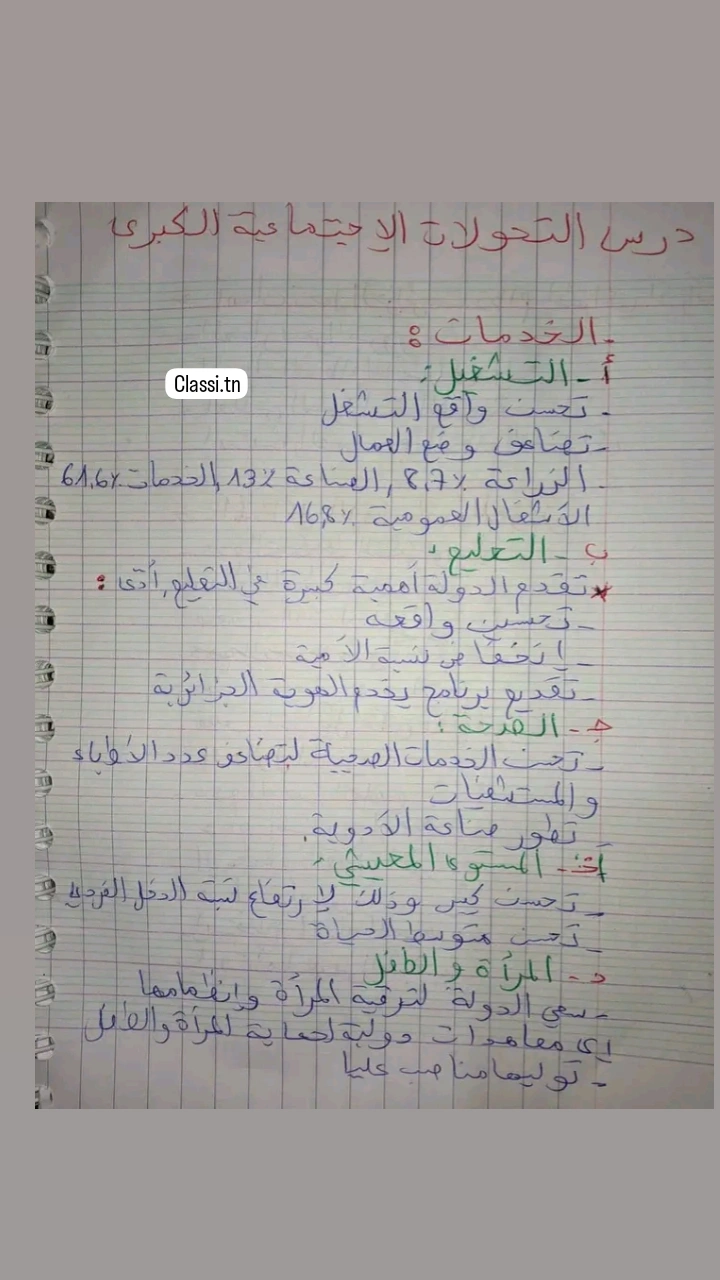 درس التحولات الإجتماعية الكبرى
- الخدمات:
أ - التشغيل:
Classi.tn
- تحسن واقع التشغل
- تضاعف وضع العمال
- الزراعة 8,7٪, الصناعة 13٪, الخدمات 61,6٪
الأشغال العمومية 16,8٪
ب - التعليم:
* تقدم الدولة أهمية كبيرة في التعليم, أدى:
- تحسين واقعه
- إنخفاض نسبة الأمية
- تقديم برنامج يخدم الهوية الجزائرية
جـ - الصحة:
- تحسن الخدمات الصحية لتضاعف عدد الأطباء
والمستشفيات
- تطور صناعة الأدوية.
- المستوى المعيشي:
- تحسن كبير وذلك لإرتفاع نسبة الدخل الفردي
- تحسن متوسط الحياة
د - المرأة و الطفل
- سعي الدولة لترقية المرأة وإنظمامها
إلى معاهدات دولية لحماية المرأة والطفل
- توليها مناصب عليا